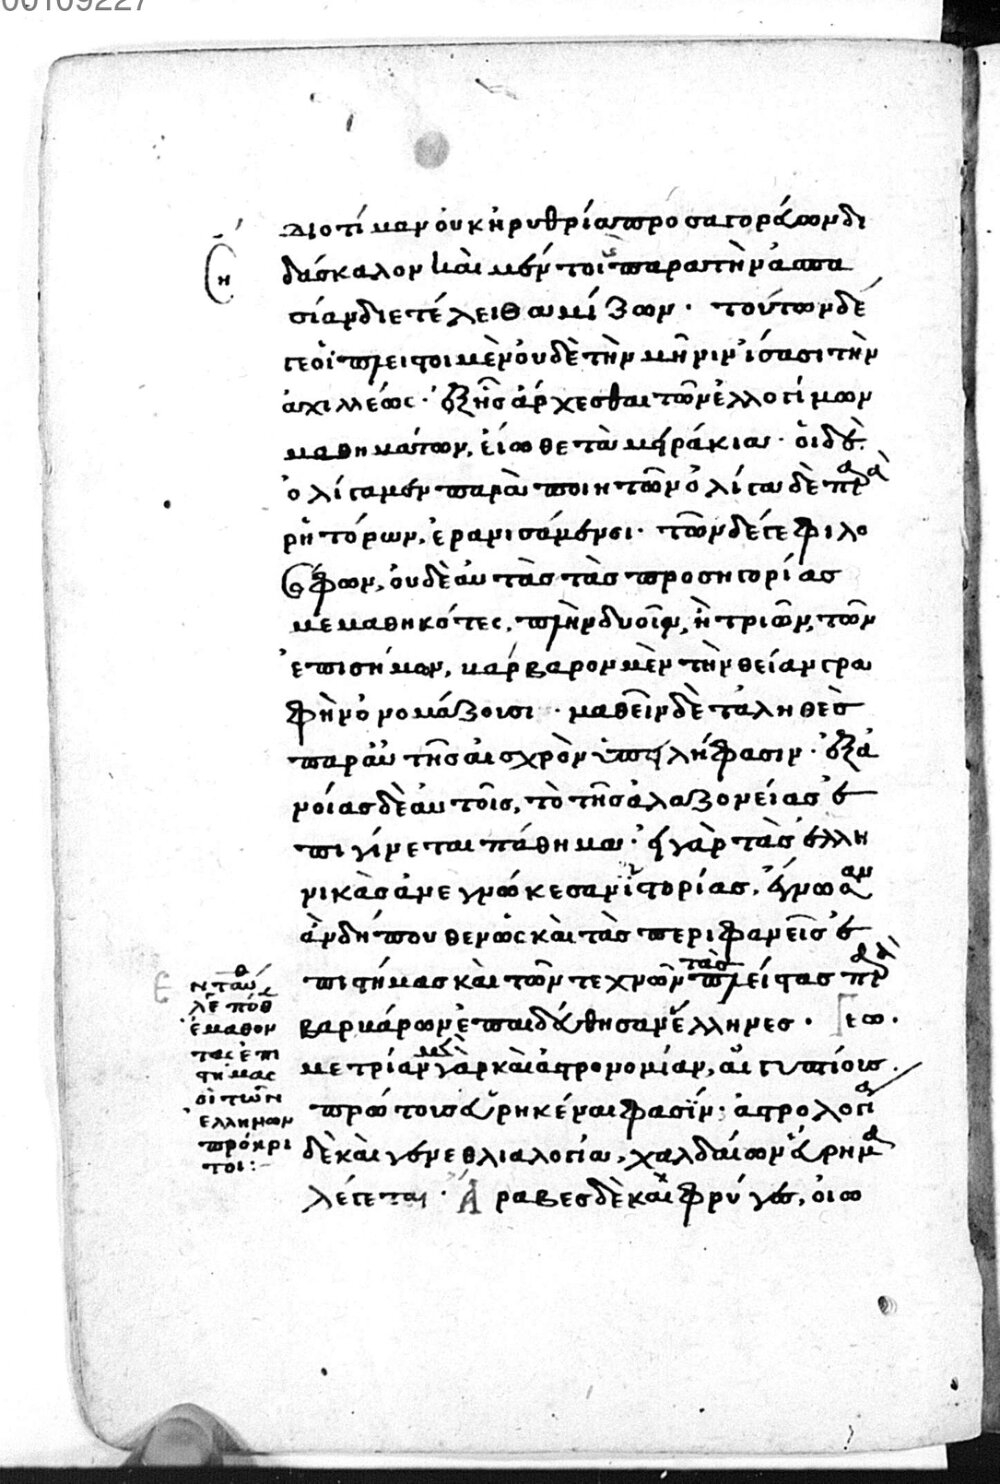 00109227
Διοτίμαν οὐκ ἠρυθρία προσαγορεύων δι
δάσκαλον καὶ μέντοι παρὰ τὴν ἀσπα
σίαν διετέλει θαμίζων · τούτων δέ
γε οἱ πλεῖστοι μὲν οὐδὲ τὴν μῆνιν ἴσασι τὴν
ἀχιλλέως · ἐξ ἧς ἄρχεσθαι τῶν ἐλλογίμων
μαθημάτων, εἴωθε τὰ μειράκια · οἱ δὲ
ὀλίγα μὲν παρὰ ποιητῶν ὀλίγα δὲ παρὰ
ῥητόρων, ἐρανισάμενοι · τῶν δέ γε φιλο
σόφων, οὐδὲ αὐτὰς τὰς προσηγορίας
μεμαθηκότες, πλὴν δυοῖν, ἢ τριῶν, τῶν
ἐπισήμων, βάρβαρον μὲν τὴν θείαν γρα
φὴν ὀνομάζουσι · μαθεῖν δὲ τἀληθὲς
παρ' αὐτῆς αἰσχρὸν ὑπειλήφασιν · ἐξ ἀ
νοίας δὲ αὐτοῖς, τὸ τῆς ἀλαζονείας ἐ
πιγίνεται πάθημα · εἰ γὰρ τὰς ἑλλη
νικὰς ἀνεγνώκεσαν ἱστορίας, ἔγνωσαν
ἂν δήπουθεν ὡς καὶ τὰς περιφανεῖς ἐ
πιστήμας καὶ τῶν τεχνῶν τὰς πλείστας παρὰ
βαρβάρων ἐπαιδεύθησαν ἕλληνες · Γεω
μετρίαν μὲν γὰρ καὶ ἀστρονομίαν, αἰγυπτίους
πρώτους εὑρηκέναι φασίν · ἀστρολογία
δὲ καὶ γενεθλιαλογία, χαλδαίων εὕρημα
λέγεται · Ἄραβες δὲ καὶ φρύγες, οἰω
Ἐνταῦθα
λέ πόθεν
ἔμαθον
τὰς ἐπι
στήμας
οἱ τῶν
ἑλλήνων
πρόκρι
τοι :